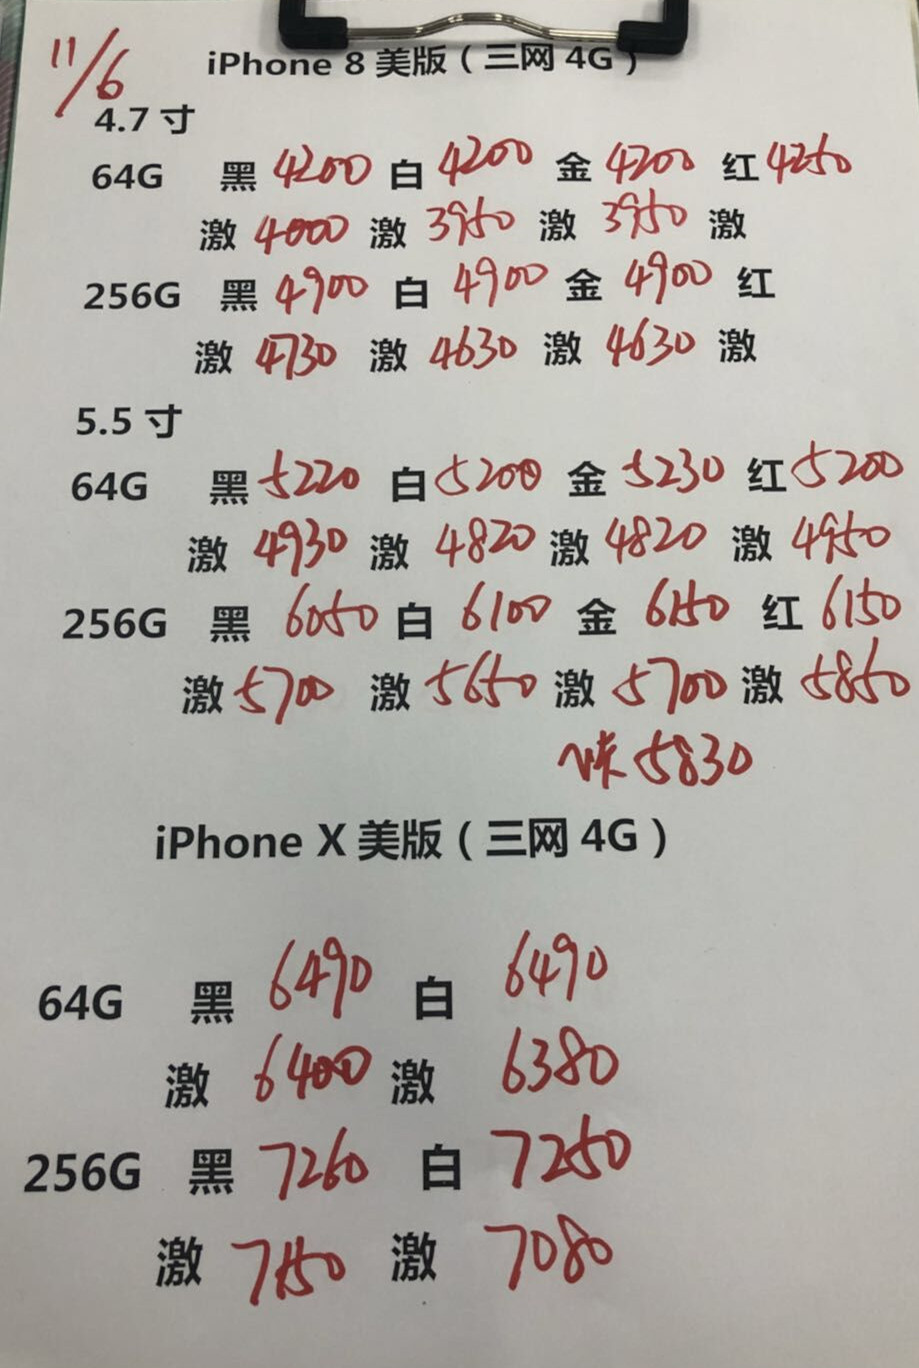 11/6 iPhone 8 美版（三网 4G）
4.7 寸
64G 黑 4200 白 4200 金 4200 红 4250
激 4000 激 3950 激 3950 激
256G 黑 4900 白 4900 金 4900 红
激 4730 激 4630 激 4630 激
5.5 寸
64G 黑 5220 白 5200 金 5230 红 5200
激 4930 激 4820 激 4820 激 4950
256G 黑 6050 白 6100 金 6150 红 6150
激 5700 激 5650 激 5700 激 5850
5830
iPhone X 美版（三网 4G）
64G 黑 6490 白 6490
激 6400 激 6380
256G 黑 7260 白 7250
激 7150 激 7080